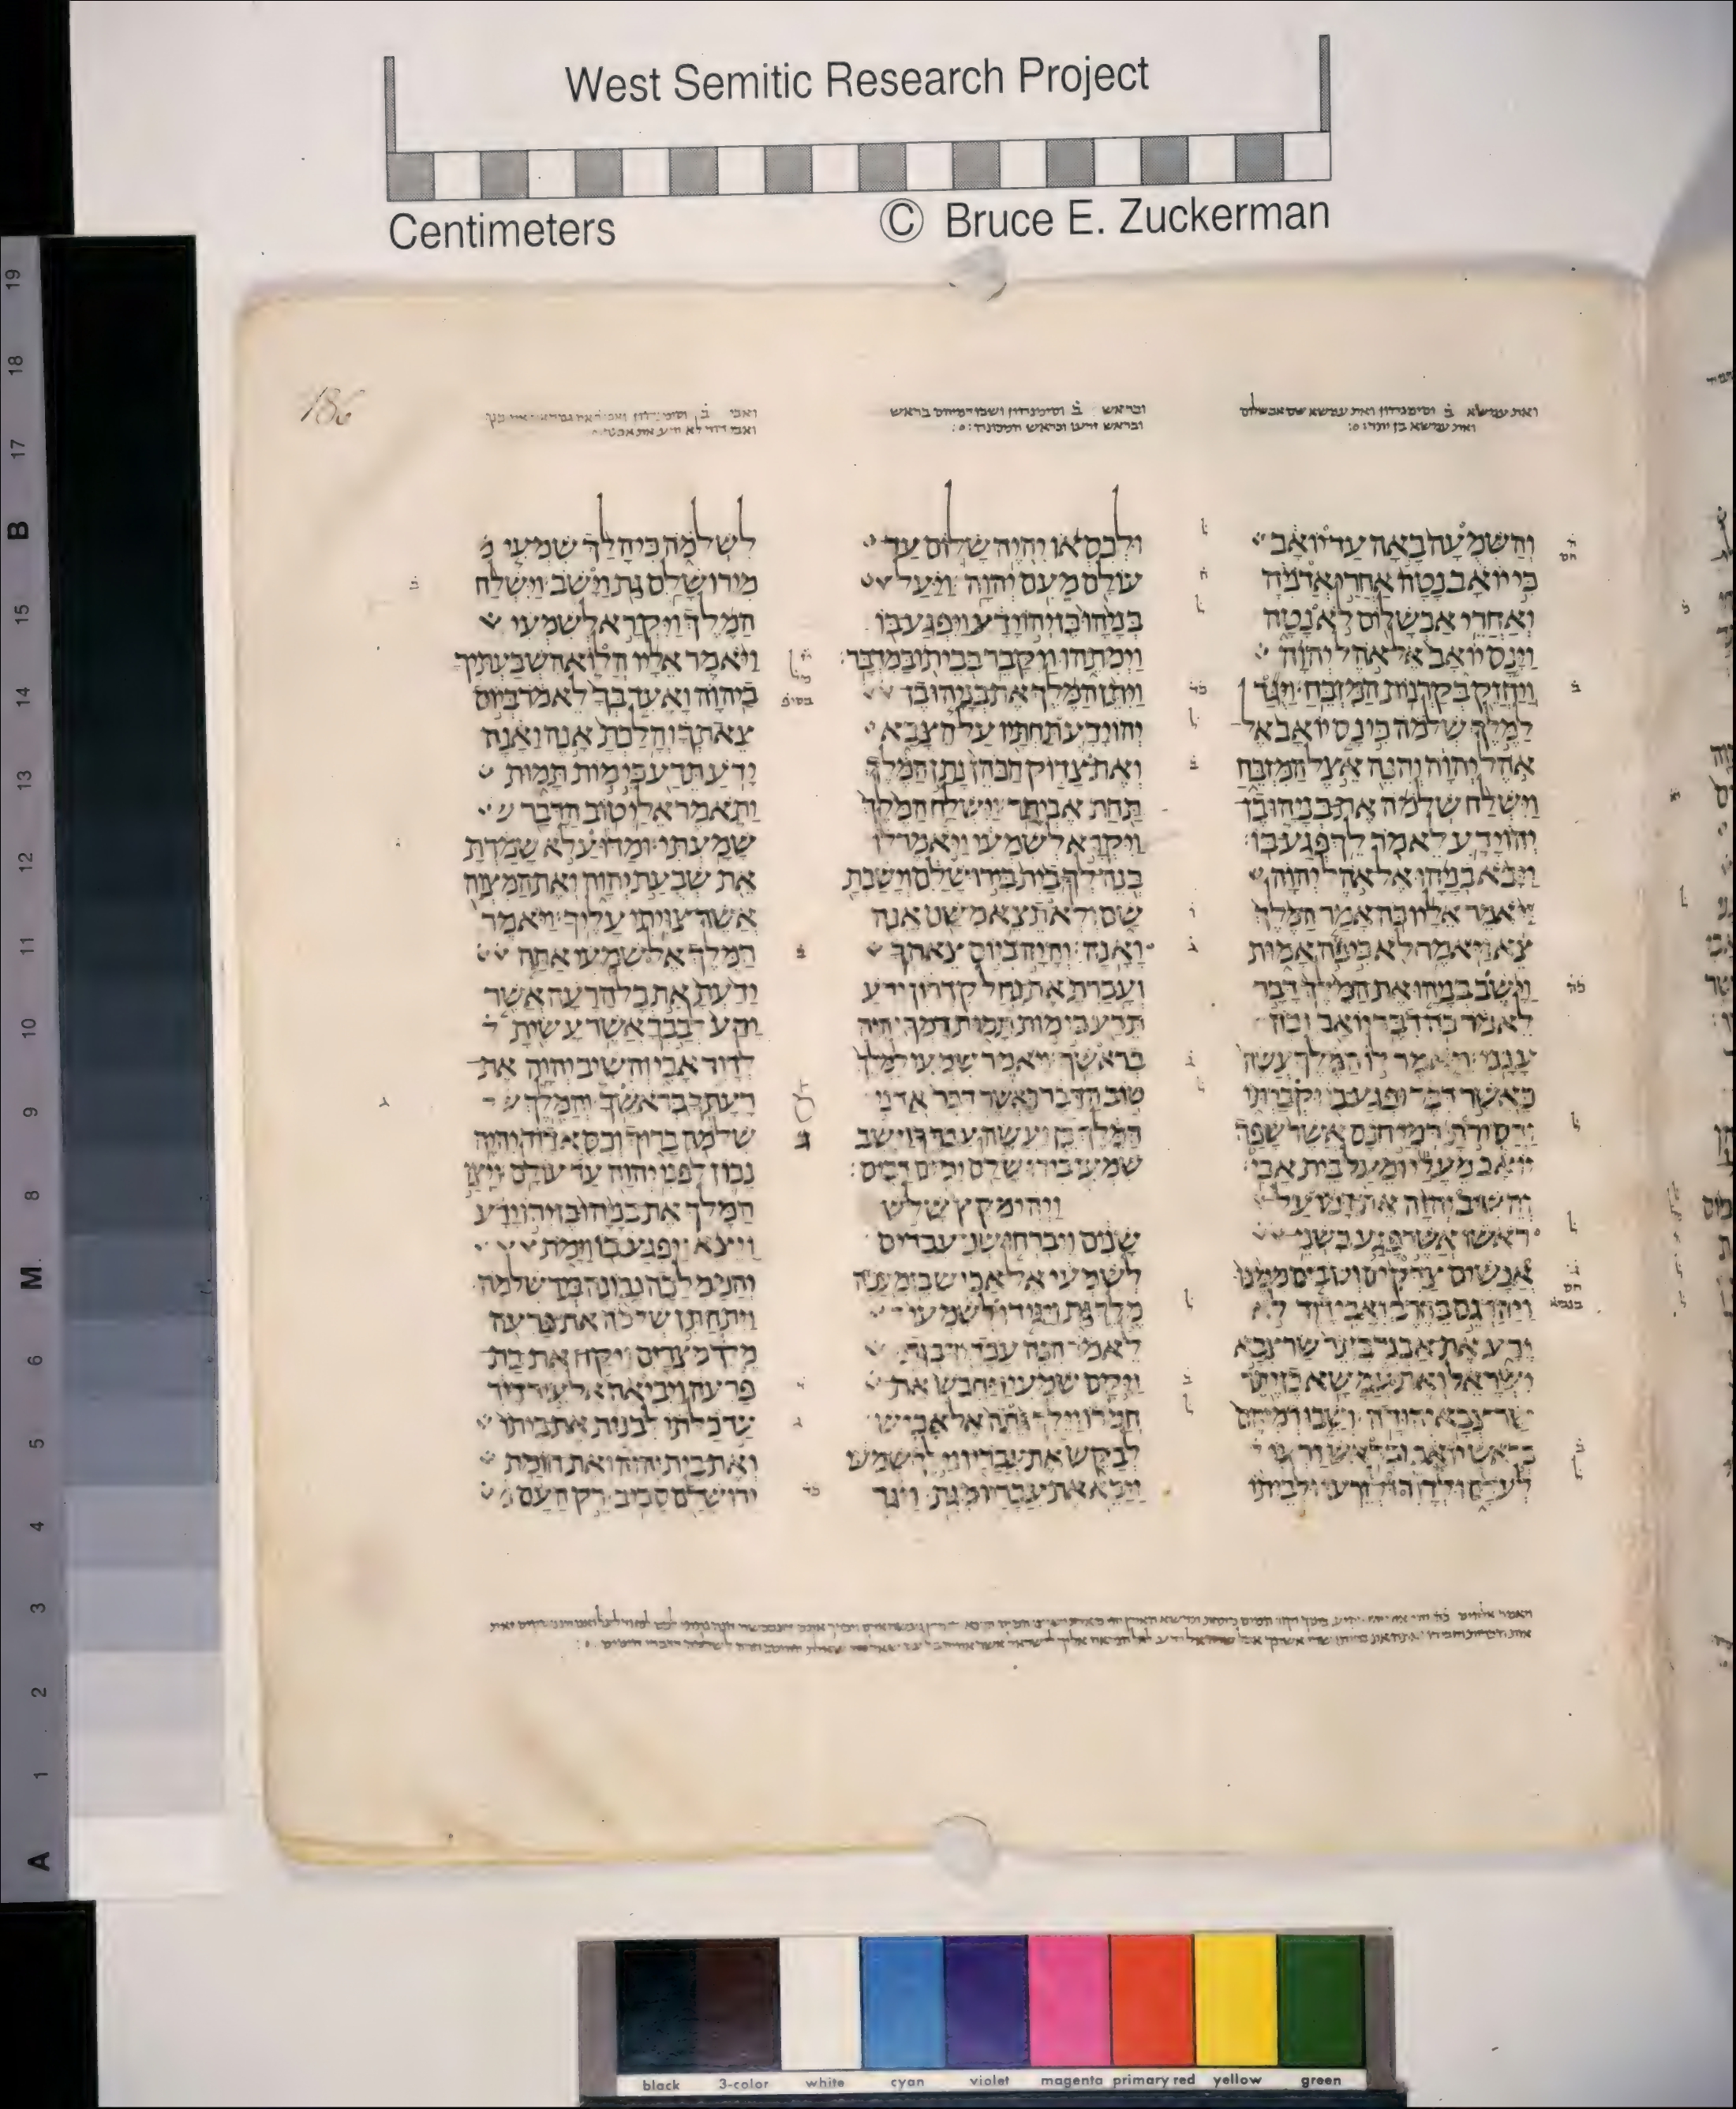 West Semitic Research Project
Centimeters © Bruce E. Zuckerman
186
ואת עמשא ב וסימנהון ואת עמשא שם אבשלום
ואת עמשא בן יתר
ובראש ב וסימנהון ושבו דמיהם בראש
ובראש זרעו
והשמעה באה עד יואב
כי יואב נטה אחרי אדניה
ואחרי אבשלום לא נטה
וינס יואב אל אהל יהוה
ויחזק בקרנות המזבח ויגד
למלך שלמה כי נס יואב אל
אהל יהוה והנה אצל המזבח
וישלח שלמה את בניהו בן
יהוידע לאמר לך פגע בו
ויבא בניהו אל אהל יהוה
ויאמר אליו כה אמר המלך
צא ויאמר לא כי פה אמות
וישב בניהו את המלך דבר
לאמר כה דבר יואב וכה
ענני ויאמר לו המלך עשה
כאשר דבר ופגע בו וקברתו
והסירת דמי חנם אשר שפך
יואב מעלי ומעל בית אבי
והשיב יהוה את דמו על
ראשו אשר פגע בשני
אנשים צדקים וטבים ממנו
ויהרגם בחרב ואבי דוד לא
ידע את אבנר בן נר שר צבא
ישראל ואת עמשא בן יתר
שר צבא יהודה ושבו דמיהם
בראש יואב ובראש זרעו
לעלם ולדוד ולזרעו ולביתו
ולכסאו יהיה שלום עד
עולם מעם יהוה ויעל
בניהו בן יהוידע ויפגע בו
וימתהו ויקבר בביתו במדבר
ויתן המלך את בניהו בן
יהוידע תחתיו על הצבא
ואת צדוק הכהן נתן המלך
תחת אביתר וישלח המלך
ויקרא לשמעי ויאמר לו
בנה לך בית בירושלם וישבת
שם ולא תצא משם אנה
ואנה והיה ביום צאתך
ועברת את נחל קדרון ידע
תדע כי מות תמות דמך יהיה
בראשך ויאמר שמעי למלך
טוב הדבר כאשר דבר אדני
המלך כן יעשה עבדך וישב
שמעי בירושלם ימים רבים
ויהי מקץ שלש
שנים ויברחו שני עבדים
לשמעי אל אכיש בן מעכה
מלך גת ויגידו לשמעי
לאמר הנה עבדיך בגת
ויקם שמעי ויחבש את
חמרו וילך גתה אל אכיש
לבקש את עבדיו וילך שמעי
ויבא את עבדיו מגת ויגד
לשלמה כי הלך שמעי
מירושלם גת וישב וישלח
המלך ויקרא לשמעי
ויאמר אליו הלוא השבעתיך
ביהוה ואעד בך לאמר ביום
צאתך והלכת אנה ואנה
ידע תדע כי מות תמות
ותאמר אלי טוב הדבר
שמעתי ומדוע לא שמרת
את שבעת יהוה ואת המצוה
אשר צויתי עליך ויאמר
המלך אל שמעי אתה
ידעת את כל הרעה אשר
ידע לבבך אשר עשית
לדוד אבי והשיב יהוה את
רעתך בראשך והמלך
שלמה ברוך וכסא דוד יהיה
נכון לפני יהוה עד עולם ויצו
המלך את בניהו בן יהוידע
ויצא ויפגע בו וימת
והממלכה נכונה ביד שלמה
ויתחתן שלמה את פרעה
מלך מצרים ויקח את בת
פרעה ויביאה אל עיר דוד
עד כלתו לבנות את ביתו
ואת בית יהוה ואת חומת
ירושלם סביב רק העם
19
18
17
B
15
14
13
12
11
10
9
8
M
6
5
4
3
2
1
A
black 3-color white cyan violet magenta primary red yellow green